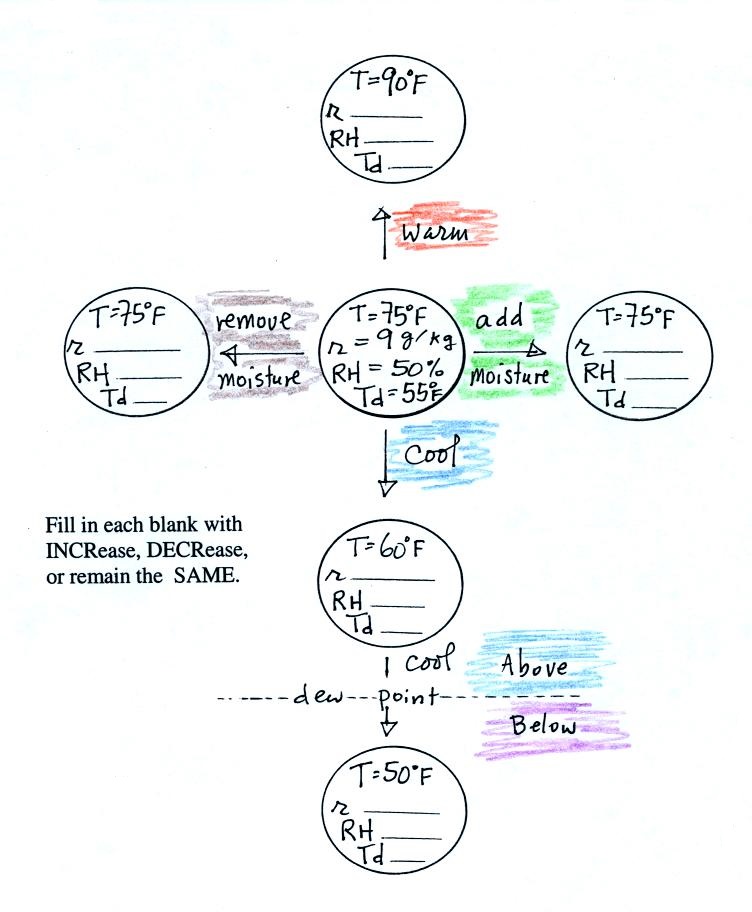 T=90°F
r ______
RH ______
Td ____
Warm
T=75°F
r ______
RH ______
Td ____
remove
moisture
T=75°F
r = 9 g/kg
RH = 50%
Td=55°F
add
moisture
T=75°F
r ______
RH ______
Td ____
Cool
Fill in each blank with
INCRease, DECRease,
or remain the SAME.
T=60°F
r ______
RH ______
Td ____
Cool Above
dew point
Below
T=50°F
r ______
RH ______
Td ____